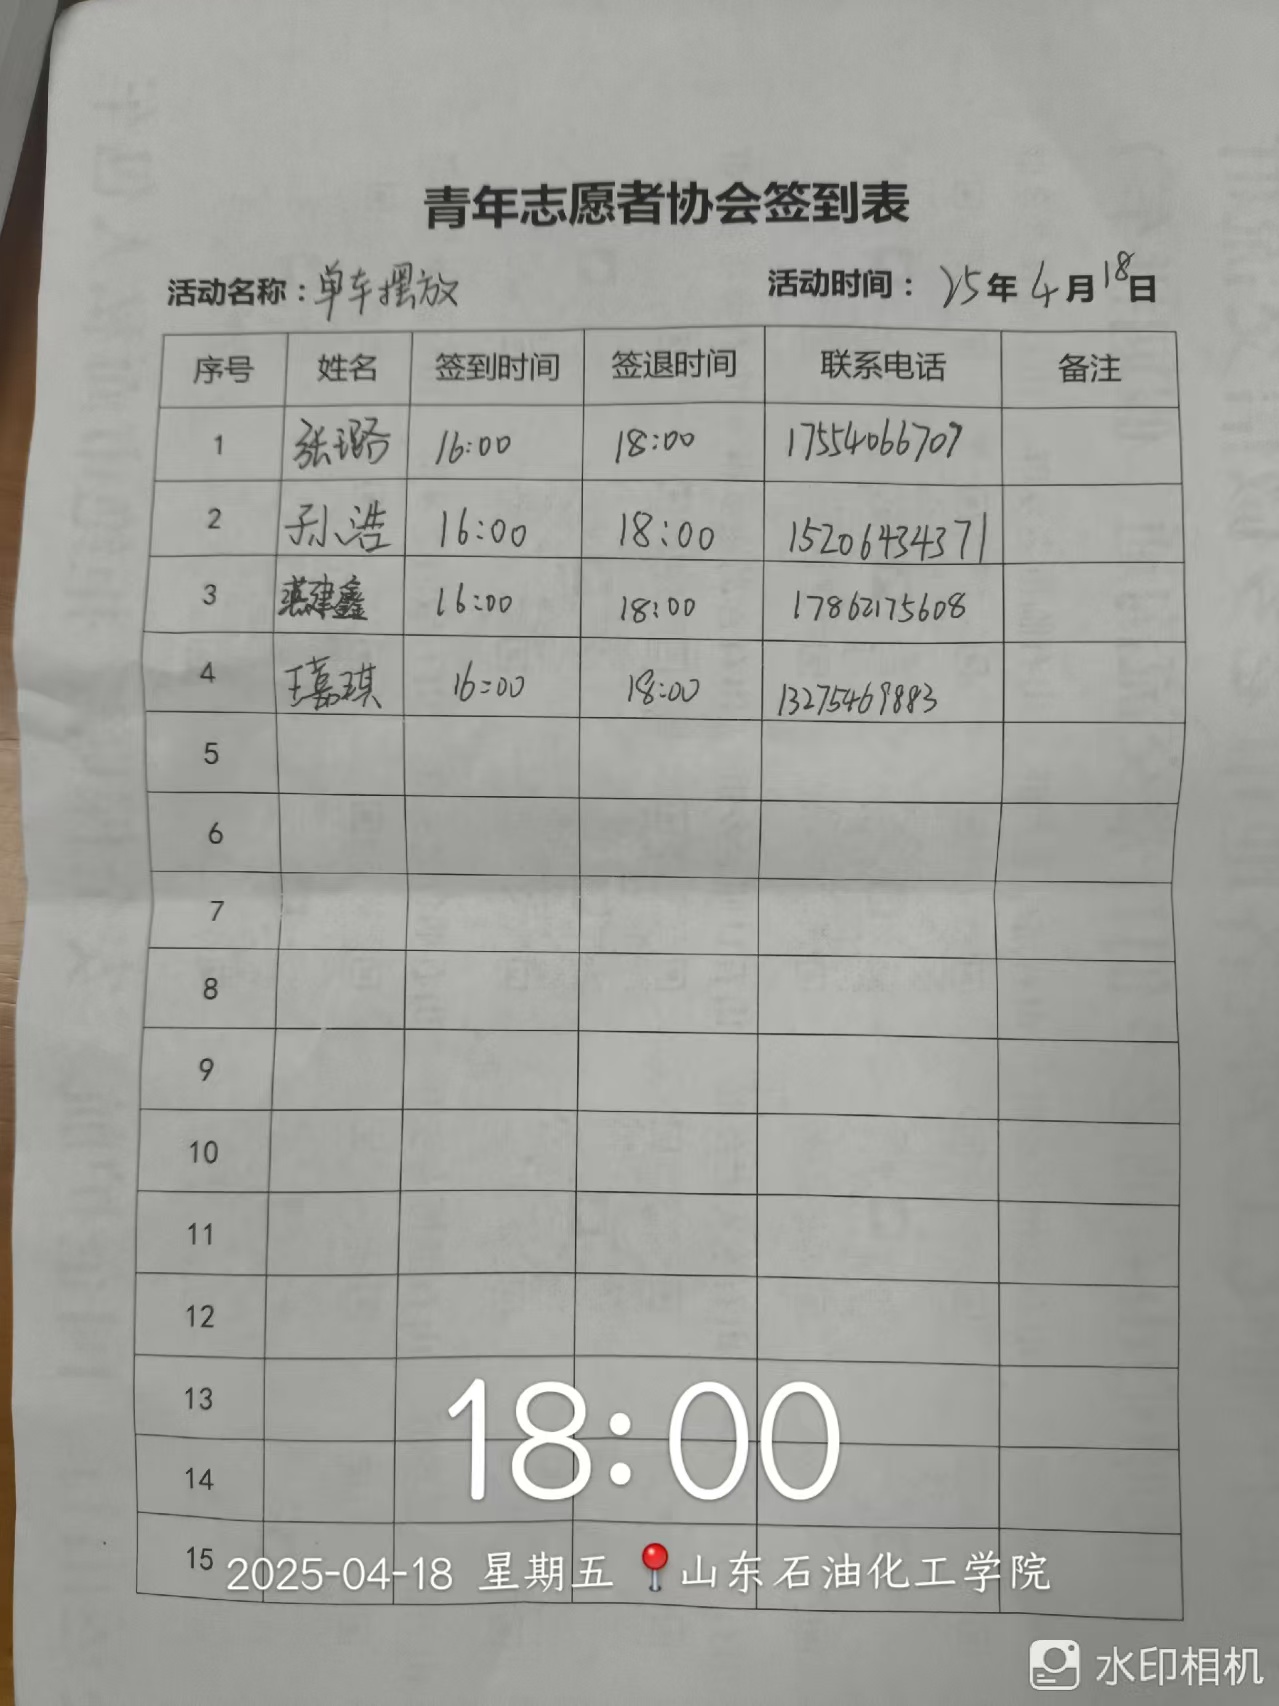 青年志愿者协会签到表
活动名称：单车摆放 活动时间：25年4月18日
序号 姓名 签到时间 签退时间 联系电话 备注
1 张璐 16:00 18:00 17554066709
2 孙浩 16:00 18:00 15206434371
3 燕建鑫 16:00 18:00 17862175608
4 王嘉琪 16:00 18:00 13275469883
5
6
7
8
9
10
11
12
13
18:00
14
15
2025-04-18 星期五 山东石油化工学院
水印相机